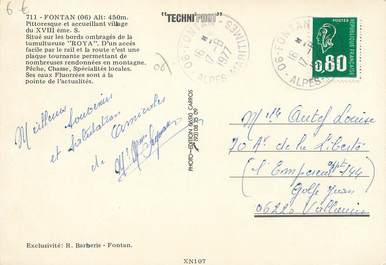 6 €
"TECHNI
711 - FONTAN (06) Alt: 450m.
Pittoresque et accueillant village
du XVIII ème. S.
Situé sur les bords ombragés de la
tumultueuse "ROYA". D'un accès
facile par le rail et la route c'est une
plaque tournante permettant de
nombreuses randonnées en montagne.
Pêche, Chasse, Spécialités locales.
Ses eaux Fluorées sont à la
pointe de l'actualité.
Meilleurs Souvenirs
et Salutations
Amicales
de
PHOTO-EDITION 06510 CARROS
06 - FONTAN
1977
ALPES-MARITIMES
06 - FONTAN
ALPES-
POSTES
0,80
REPUBLIQUE FRANÇAISE
Louise
70 Av. de la Liberté
Golfe Juan
06220 Vallauris
Exclusivité: R. Barberis - Fontan.
XN107